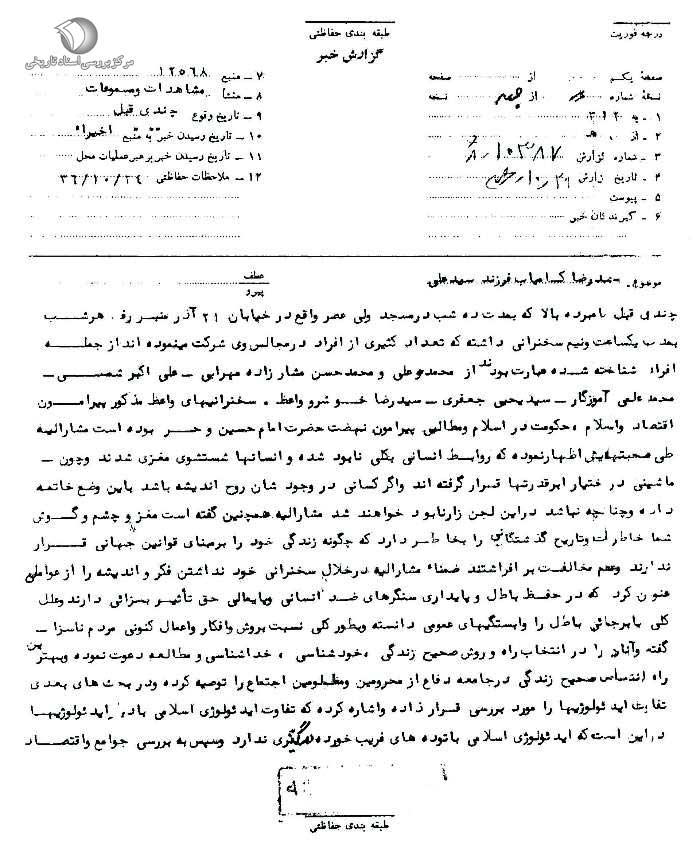 مرکز بررسی اسناد تاریخی
طبقه بندی حفاظتی
درجه فوریت
گزارش خبر
صفحه یکم از صفحه
نسخهٔ شماره از نسخه
۱ - به ۳۱۲
۲ - از
۳ - شماره گزارش
۴ - تاریخ گزارش
۵ - پیوست
۶ - گیرندگان خبر
۷ - منبع ۱۲۵۶۸
۸ - منشاء مشاهدات ومسموعات
۹ - تاریخ وقوع چندی قبل
۱۰ - تاریخ رسیدن خبر به منبع اخیراً
۱۱ - تاریخ رسیدن خبر برهبر عملیات محل
۱۲ - ملاحظات حفاظتی ۳۶/۱۰/۲۴
موضوع فرزند سیدعلی
عطف
پیرو
چندی قبل نامبرده بالا که بمدت ده شب درمسجد ولی عصر واقع در خیابان ۲۱ آذر منبر رفته هرشب
بمدت یکساعت ونیم سخنرانی داشته که تعداد کثیری از افراد درمجالس وی شرکت مینموده اند از جمله
افراد شناخته شده عبارت بودند از محمدموعلی و محمدحسن مشارزاده مهرابی - علی اکبر شمسی -
محمدعلمی آموزگار - سیدیحیی جعفری - سیدرضا خسروشرو واعظ . سخنرانیهای واعظ مذکور پیرامون
اقتصاد واسلام ،حکومت در اسلام ومطالبی پیرامون نهضت حضرت امام حسین و حر بوده است مشارالیه
طی صحبتهایش اظهارنموده که روابط انسانی بکلی نابود شده و انسانها شستشوی مغزی شدند وچون -
ماشینی در اختیار ابرقدرتها قرار گرفته اند واگر کسانی در وجود شان روح اندیشه باشد باین وضع خاتمه
داده وچنانچه نباشد دراین لجن زارنابود خواهند شد مشارالیه همچنین گفته است مغز و چشم و گوش
شما خاطرات وتاریخ گذشتگانی را بخاطر دارد که چگونه زندگی خود را برمبنای قوانین جهانی قرار
ندارند وعلم مخالفت بر افراشتند ضمناً مشارالیه درخلال سخنرانی خود نداشتن فکر و اندیشه را از عواملی
عنوان کرد که در حفظ باطل و پایداری سنگرهای ضد انسانی وپایمالی حق تأثیر بسزائی دارند وعلل
کلی پابرجائی باطل را وابستگیهای عمومی دانسته وبطور کلی نسبت بروش وافکار واعمال کنونی مردم ناسزا -
گفته وآنان را در انتخاب راه و روش صحیح زندگی ،خودشناسی ، خداشناسی و مطالعه دعوت نموده وبهترین
راه اقتباس صحیح زندگی درجامعه دفاع از محرومین ومظلومین اجتماع را توصیه کرده ودر بحث های بعدی
تفاوت ایدئولوژیها را مورد بررسی قرار داده واشاره کرده که تفاوت ایدئولوژی اسلامی با دیگر ایدئولوژیها
در این است که ایدئولوژی اسلامی باتوده های فریب خورده ندارد وسپس به بررسی جوامع واقتصاد
طبقه بندی حفاظتی